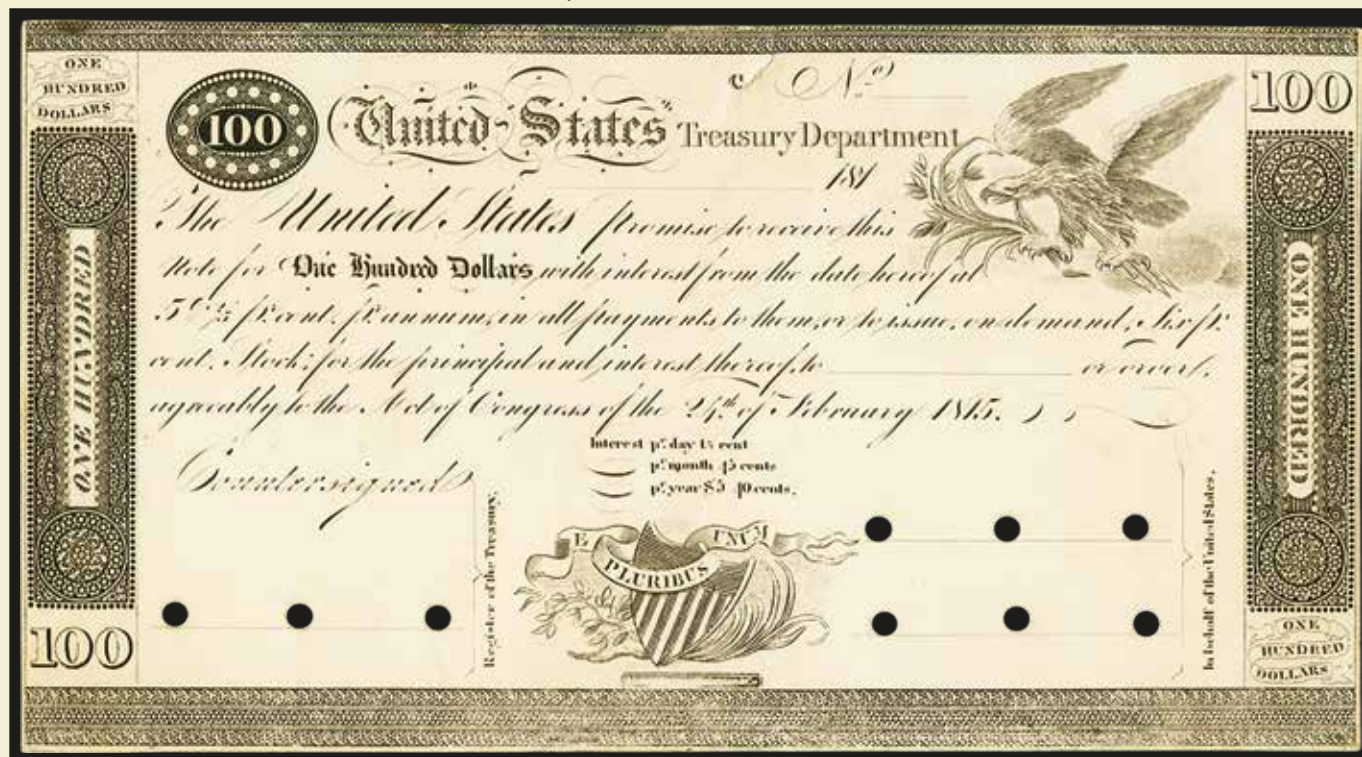 ONE
HUNDRED
DOLLARS
100
ONE HUNDRED
100
100
United States Treasury Department
No
181
The United States promise to receive this
Note for One Hundred Dollars with interest from the date hereof at
5 2/5 pr. cent. pr. annum, in all payments to them, or to issue, on demand, Six pr.
cent. Stock, for the principal and interest thereof, to or order,
agreeably to the Act of Congress of the 24th of February 1815.
Interest pr. day 1½ cent
pr. month 45 cents
pr. year $5 40 cents.
Countersigned
Register of the Treasury.
E PLURIBUS UNUM
In behalf of the United States.
100
ONE HUNDRED
ONE
HUNDRED
DOLLARS